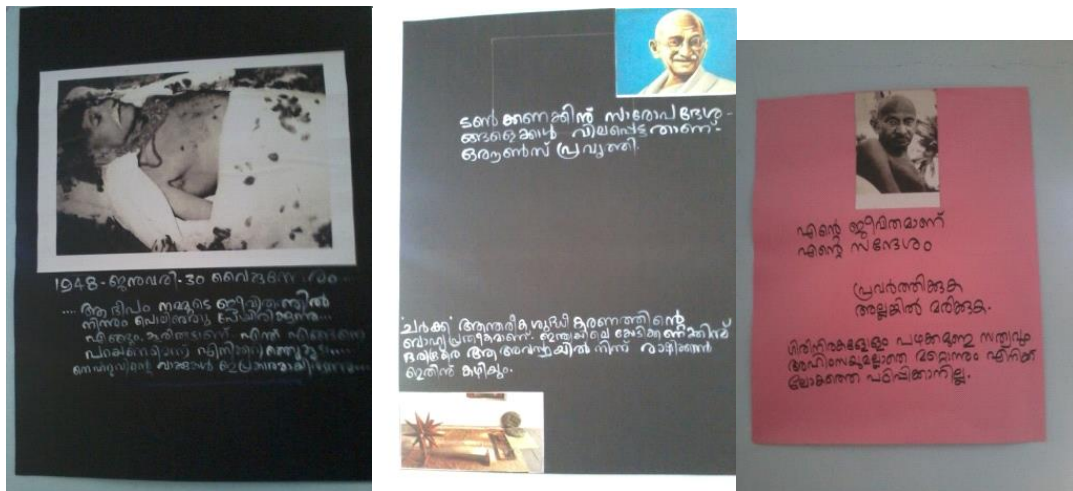 1948-ജനുവരി-30 വൈകുന്നേരം
.... ആ ദീപം നമ്മുടെ ജീവിതത്തിൽ
നിന്നും പൊലിഞ്ഞു പോയിരിക്കുന്നു...
എങ്ങും
ടൺ കണക്കിന് സാരോപദേശ-
ങ്ങളെക്കാൾ വിലപ്പെട്ടതാണ്-
ഒരൗൺസ് പ്രവൃത്തി.
'ചർക്ക' ആന്തരീക ശുദ്ധീകരണത്തിന്റെ
ബാഹ്യ പ്രതീകമാണ്. ഇന്ത്യയിലെ കോടിക്കണക്കിന്
ആ അവസ്ഥയിൽ നിന്ന്
ഇതിന് കഴിയും.
എന്റെ ജീവിതമാണ്
എന്റെ സന്ദേശം
പ്രവർത്തിക്കുക
അല്ലങ്കിൽ മരിക്കുക.
ഗിരിനിരകളോളം പഴക്കമുള്ള സത്യവും
അഹിംസയുമല്ലാതെ മറ്റൊന്നും എനിക്ക്
ലോകത്തെ പഠിപ്പിക്കാനില്ല.